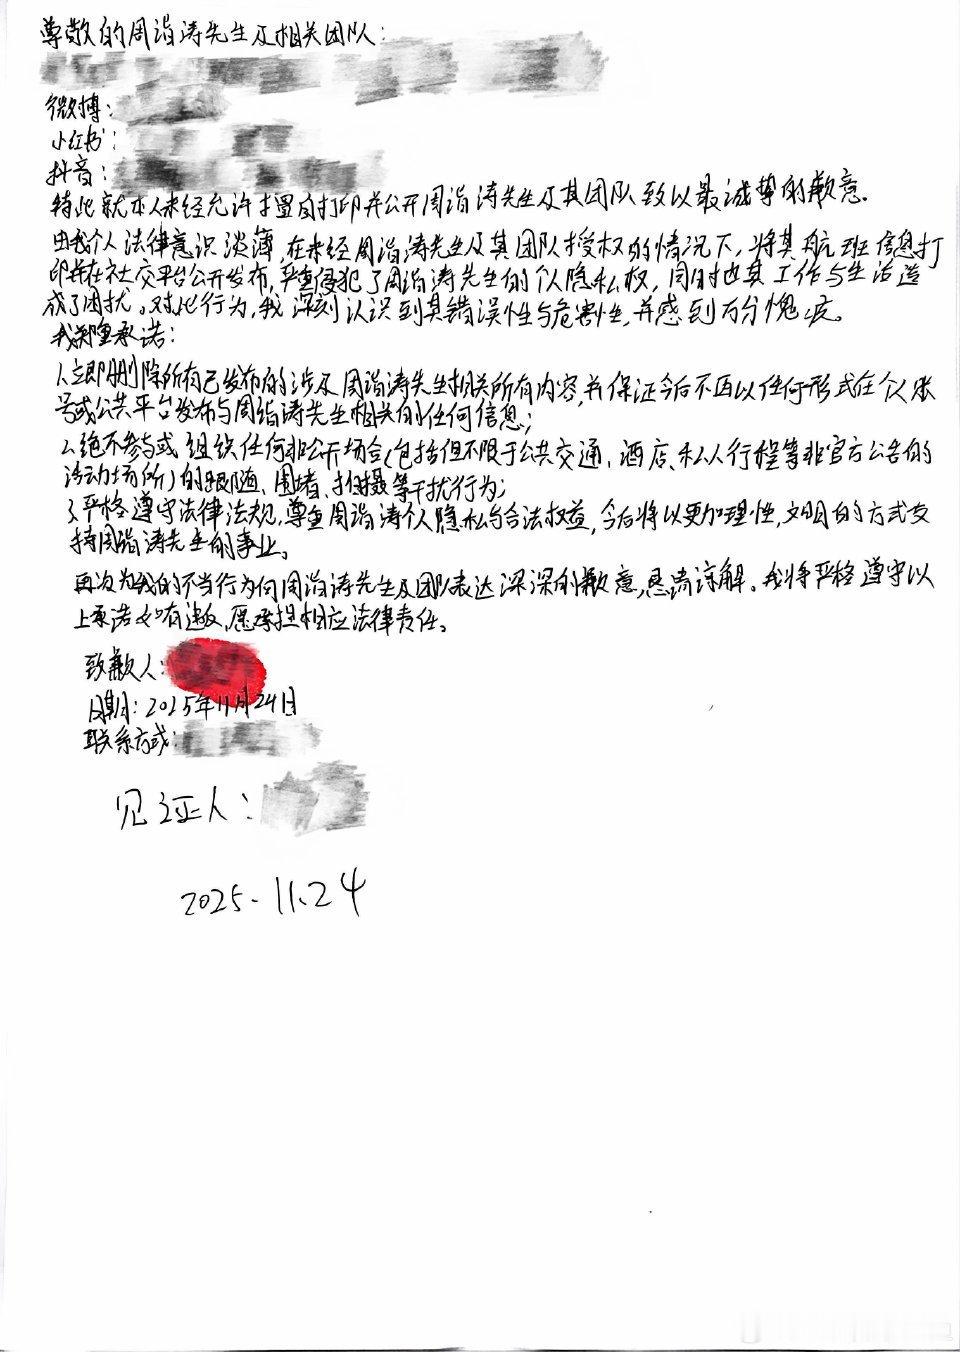 尊敬的周诣涛先生及相关团队:
微博:
小红书:
抖音:
特此就本人未经允许擅自打印并公开周诣涛先生及其团队致以最诚挚的歉意.
由我个人法律意识淡薄,在未经周诣涛先生及其团队授权的情况下,将其航班信息打
印并在社交平台公开发布,严重侵犯了周诣涛先生的个人隐私权,同时也其工作与生活造
成了困扰。对此行为,我深刻认识到其错误性与危害性,并感到万分愧疚。
我郑重承诺:
1.立即删除所有已发布的涉及周诣涛先生相关所有内容,并保证今后不再以任何形式在个人账
号或公共平台发布与周诣涛先生相关的任何信息;
2.绝不参与或组织任何非公开场合(包括但不限于公共交通、酒店、私人行程等非官方公告的
活动场所)的跟随、围堵、拍摄等干扰行为;
3.严格遵守法律法规,尊重周诣涛个人隐私与合法权益,今后将以更加理性,文明的方式支
持周诣涛先生的事业。
再次为我的不当行为向周诣涛先生及团队表达深深的歉意,恳请谅解。我将严格遵守以
上承诺如有违反,愿承担相应法律责任。
致歉人:
日期:2025年11月24日
联系方式:
见证人:
2025.11.24